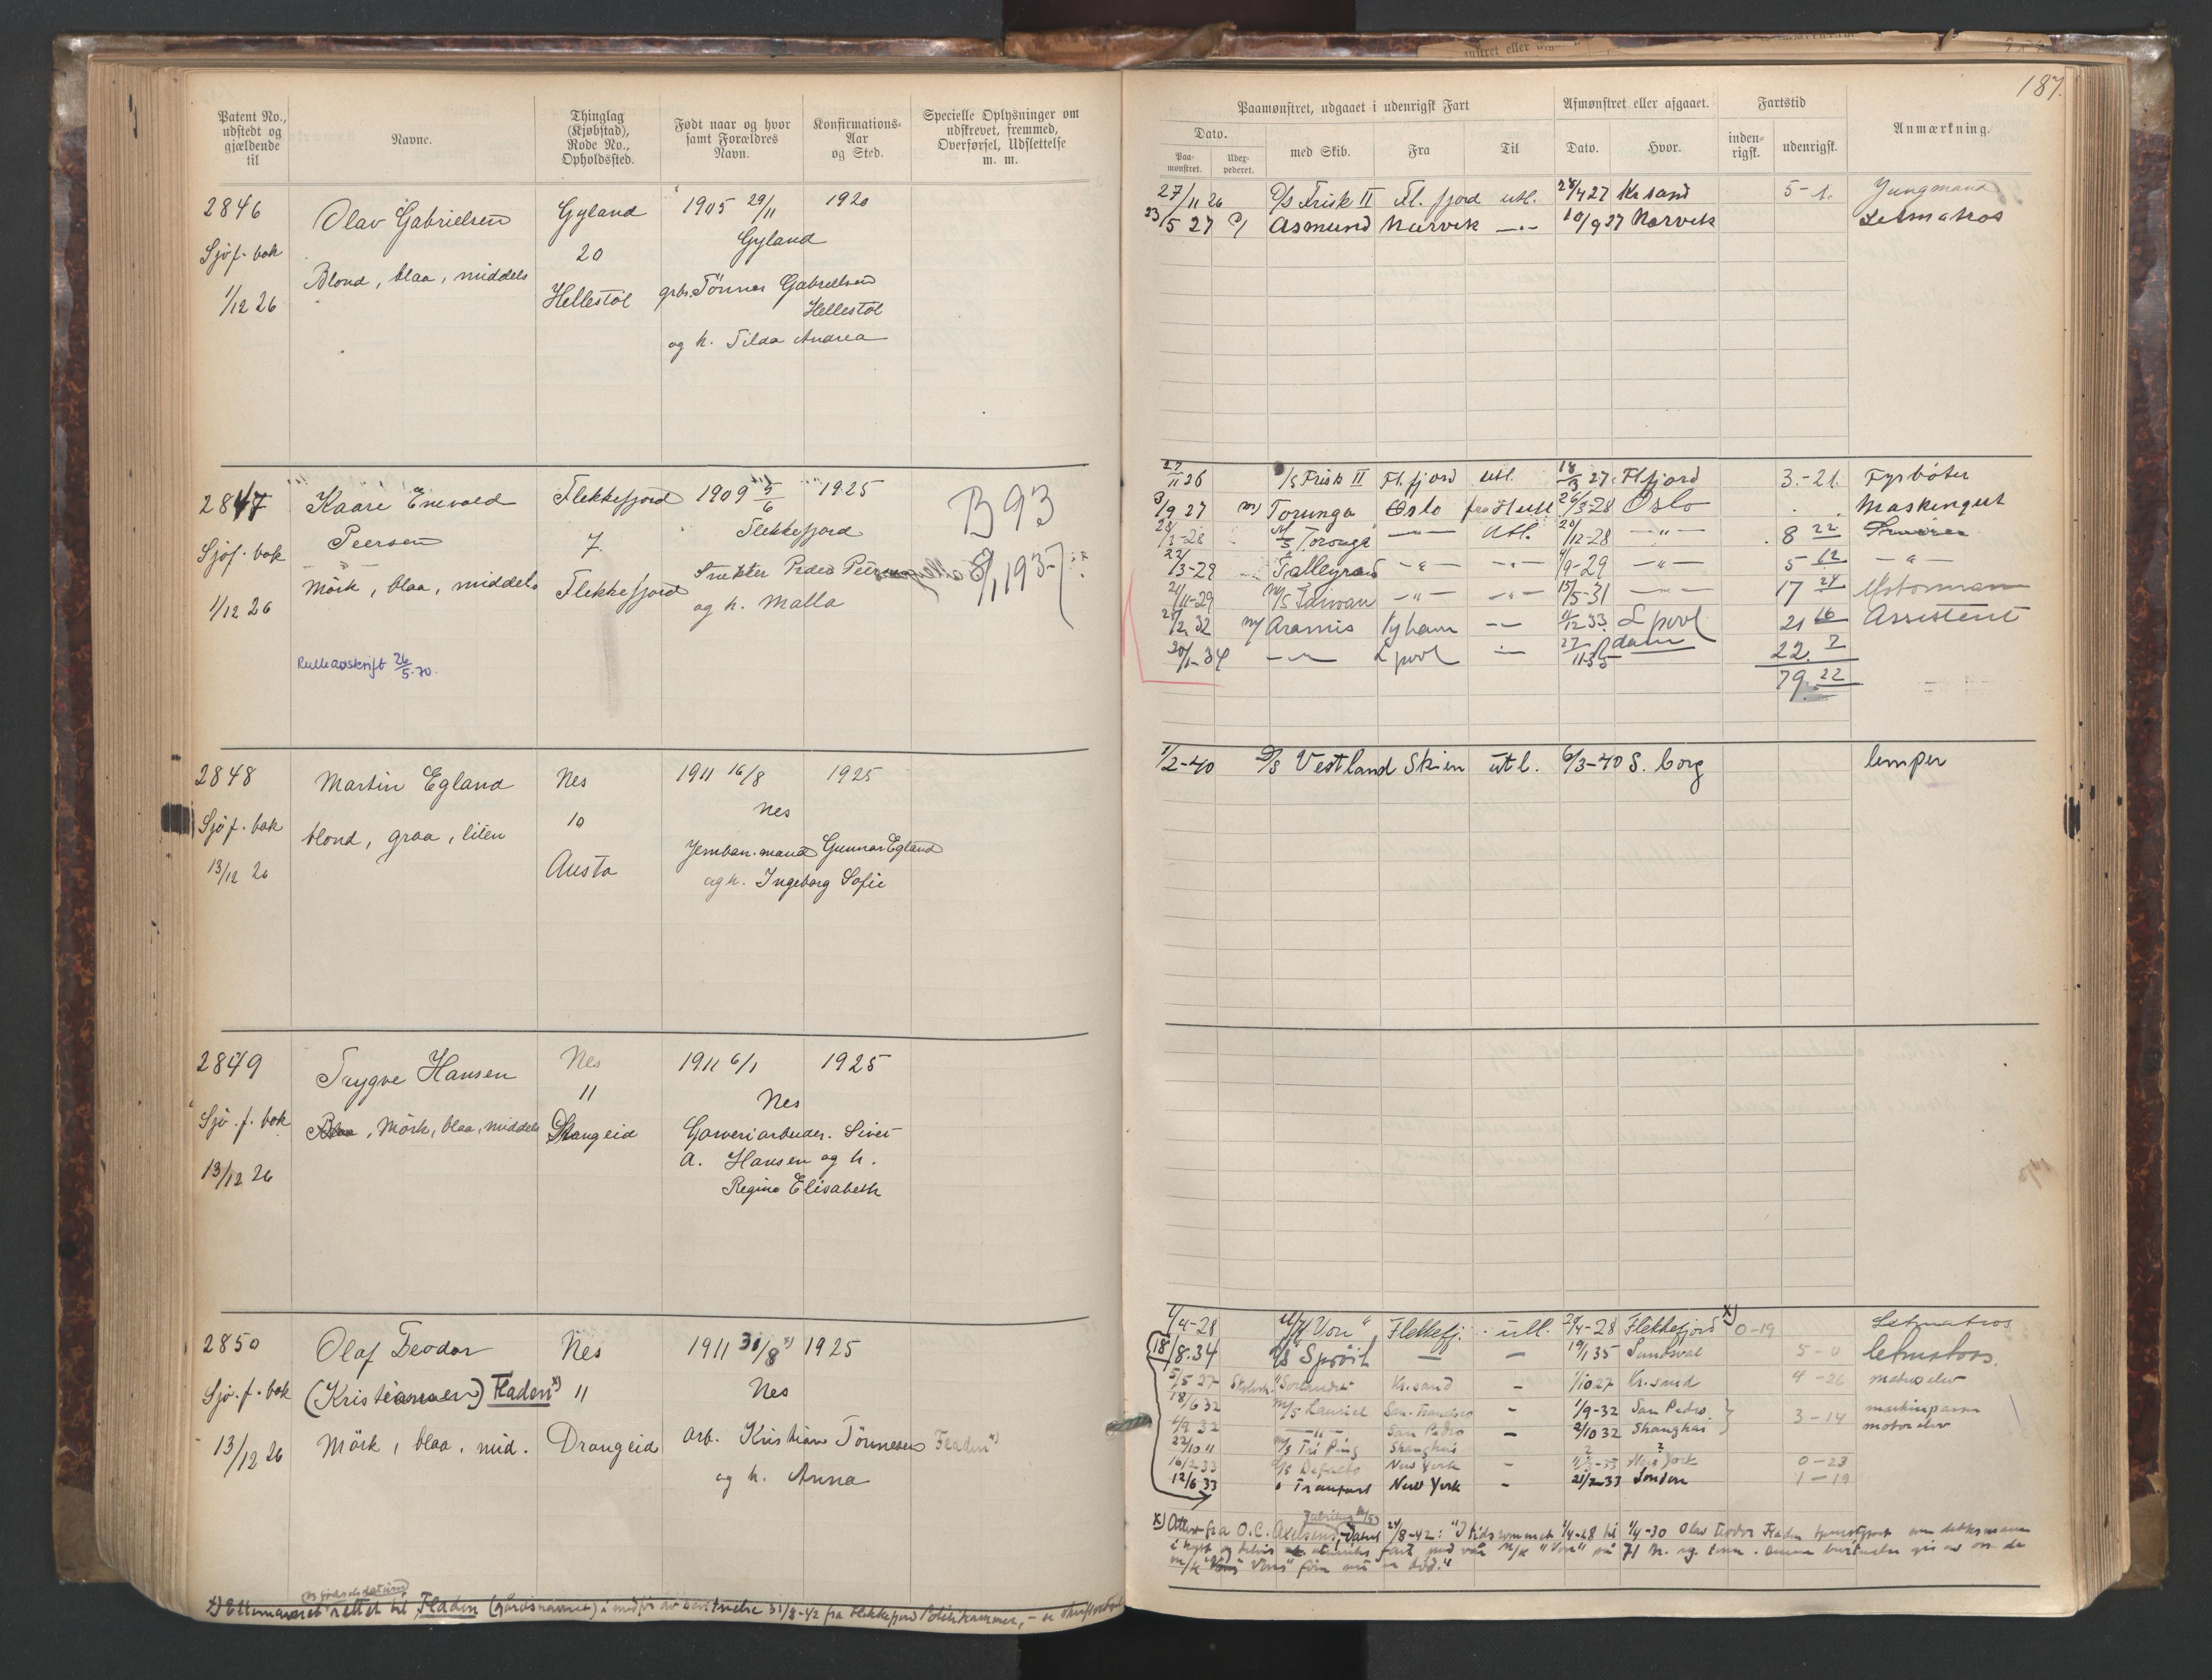 187.
Patent No., udstedt og gjældende til
Navne.
Thinglag (Kjøbstad), Rode No., Opholdssted.
Født naar og hvor samt Forældres Navn.
Konfirmations-Aar og Sted.
Specielle Oplysninger om udskrevet, fremmed, Overførsel, Udslettelse m. m.
Paamønstret, udgaaet i udenrigsk Fart
Afmønstret eller afgaaet.
Fartstid
Anmærkning.
Dato.
Paa-mønstret.
Udex-pederet.
med Skib.
Fra
Til
Dato.
Hvor.
inden-rigsk.
udenrigsk.
2846 Olav Gabrielsen Gyland 1905 29/11 1920
Sjøf. bok 20 Gyland
Blond, blaa, middels
1/12 26 Hellestøl grbr. Tönnes Gabrielsen
Hellestøl
og h. Tilda Andrea
27/11 26 D/S Frisk II Fl. fjord utl. 28/4 27 Kr sand 5-1. Jungmand
23/5 27 D/ Asmund Narvik -"- 10/9 27 Narvik Letmatros
2847 Kaare Enevold Flekkefjord 1909 5/6 1925 B 93
Peersen 7. Flekkefjord
Sjøf. bok
Mörk, blaa, middels Flekkefjord Peder Peersen 1937
1/12 26 og h. Malla
Rulleavskrift 26/5-70.
27/11 26 D/S Frisk II Fl. fjord utl. 18/3 27 Fl. fjord 3.-21. Fyrböter
3/9 27 m/ Torunga Oslo fra Hull 26/3-28 Oslo Maskingut
28/3-28 M/S Toronga -"- utl. 20/12-28 -"- 8 22 Smører
22/3-29 Talleyrand -"- -"- 4/9-29 -"- 5 12 -"-
21/11-29 M/S Taiwan -"- -"- 15/5-31 -"- 17 24 Motormann
25/2 32 m/ Aramis -"- 11/12 33 L pool 21 16 Assistent
20/1-34 -"- L pool -"- 27/11-35 22. 7
79. 22
2848 Martin Egland Nes 1911 16/8 1925
Sjøf. bok 10 Nes
blond, graa, liten
13/12 26 Austa Jernban. mand Gunnar Egland
og h. Ingeborg Sofie
1/2-40 D/S Vestland Skien utl. 6/3-40 S. borg lemper
2849 Trygve Hansen Nes 1911 6/1 1925
11 Nes
Sjø. f. bok Blaa, Mörk, blaa, middels Drangeid Garveriarbeider. Sivert
13/12 26 A. Hansen og h.
Regine Elisabeth
2850 Olaf Teodor Nes 1911 31/8 x) 1925
Sjø. f. bok (Kristiansen) Fladen x) 11 Nes
13/12 26 Mörk, blaa, mid. Drangeid arb. Kristian Tönnesen Fladen x)
og h. Anna
1/4-28 M/K "Von" Flekkefj. utl. 29/4-28 Flekkefjord x) 0-19 Letmatros
18/8.34 D/S Spröit - - 19/1 35 Sundsval 5-0 letmatros.
5/5 27 Skolesk. "Sørlandet" Kr. sand - 1/10 27 Kr. sand 4-26
18/6 32 M/S Lauriel San. Francisco - 1/9-32 San Pedro 3-14
1/9 32 -"- San Pedro - 2/10 32 Shanghai
22/10 " M/S Tai Ping Shanghai ? ?
16/2-33 New York - New York 0-23
12/6 33 New York - 21/7-33 London 1-19
x) Attest fra O. C. Axelsens Fabrikker, datert 24/8-42: "I tidsrommet 1/4-28 til 1/4-30 Olav Teodor Fladen
M/K "Von" på 71 br. reg. tonn.
x) Etternavnet og fødselsdatum rettet til Fladen (gårdsnavnet) i medför av bekreftelse 31/8-42 fra Flekkefjord Politikammer,